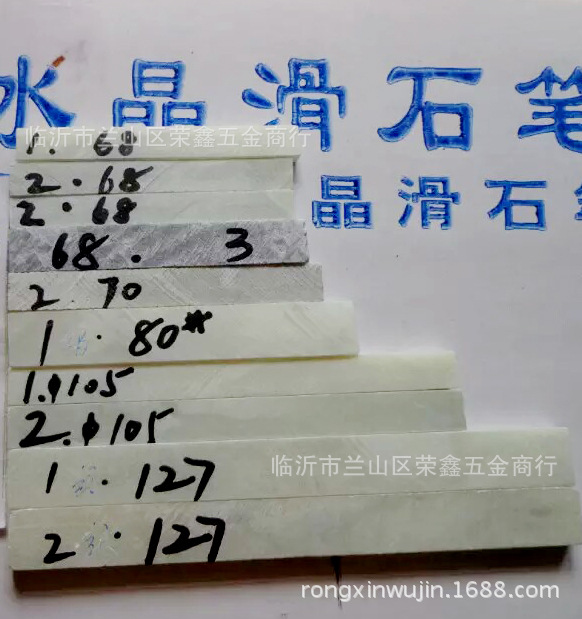 水晶滑石笔
晶滑石笔
临沂市兰山区荣鑫五金商行
1. 68
2 · 68
2 · 68
68. 3
2. 70
1 · 80#
1.φ105
2.φ105
临沂市兰山区荣鑫五金商行
1 · 127
2 · 127
rongxinwujin.1688.com